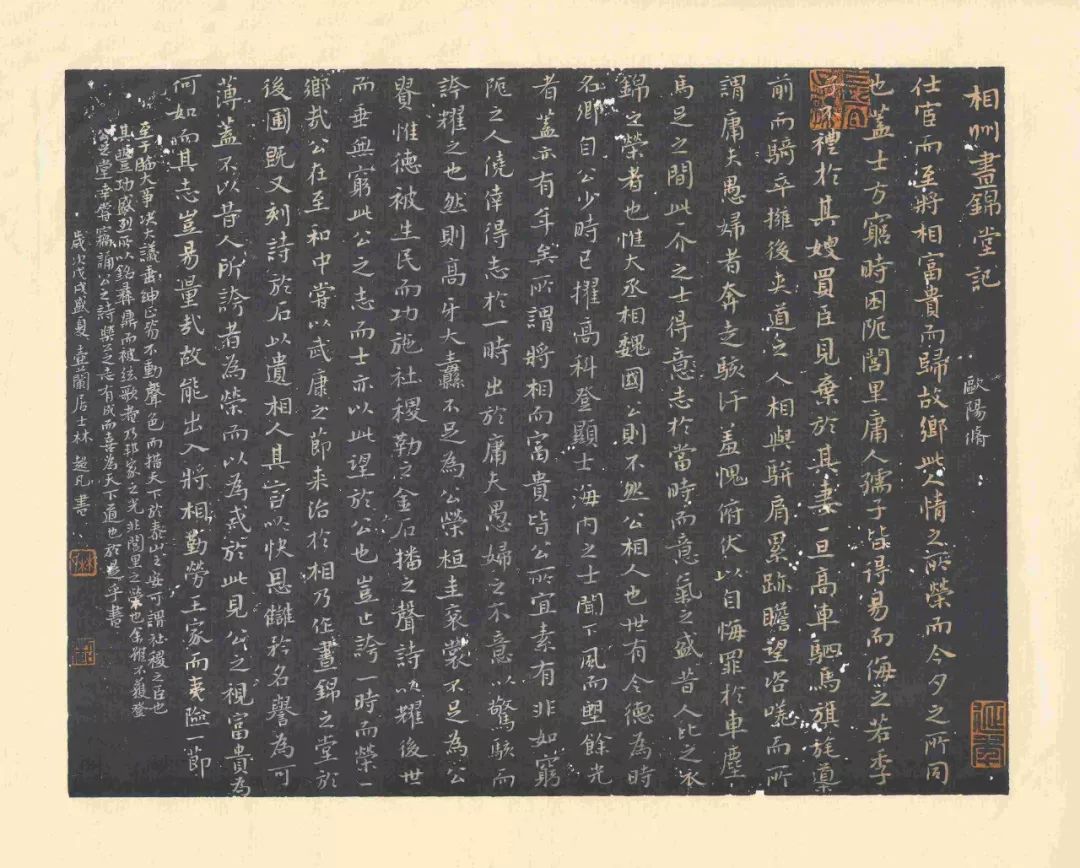 相州晝錦堂記
歐陽脩
仕宦而至將相富貴而歸故鄉此人情之所榮而今夕之所同
也蓋士方窮時困阨閭里庸人孺子皆得易而侮之若季
子不禮於其嫂買臣見棄於其妻一旦高車駟馬旗旄導
前而騎卒擁後夾道之人相與駢肩累跡瞻望咨嗟而所
謂庸夫愚婦者奔走駭汗羞愧俯伏以自悔罪於車塵
馬足之間此一介之士得意志於當時而意氣之盛昔人比之衣
錦之榮者也惟大丞相魏國公則不然公相人也世有令德為時
名卿自公少時已擢高科登顯士海內之士聞下風而望餘光
者蓋亦有年矣所謂將相而富貴皆公所宜素有非如窮
阨之人僥倖得志於一時出於庸夫愚婦之不意以驚駭而
誇耀之也然則高牙大纛不足為公榮桓圭袞裳不足為公
貴惟德被生民而功施社稷勒之金石播之聲詩以耀後世
而垂無窮此公之志而士亦以此望於公也豈止誇一時而榮一
鄉哉公在至和中嘗以武康之節來治於相乃作晝錦之堂於
後圃既又刻詩於石以遺相人其言以快恩讎矜名譽為可
薄蓋不以昔人所誇者為榮而以為戒於此見公之視富貴為
何如而其志豈易量哉故能出入將相勤勞王家而夷險一節
至于臨大事決大議垂紳正笏不動聲色而措天下於泰山之安可謂社稷之臣也
其豐功盛烈所以銘彝鼎而被弦歌者乃邦家之光非閭里之榮也余雖不獲登
公之堂幸嘗竊誦公之詩樂公之志有成而喜為天下道也於是乎書
歲次戊戌盛夏 壺蘭居士林超凡書